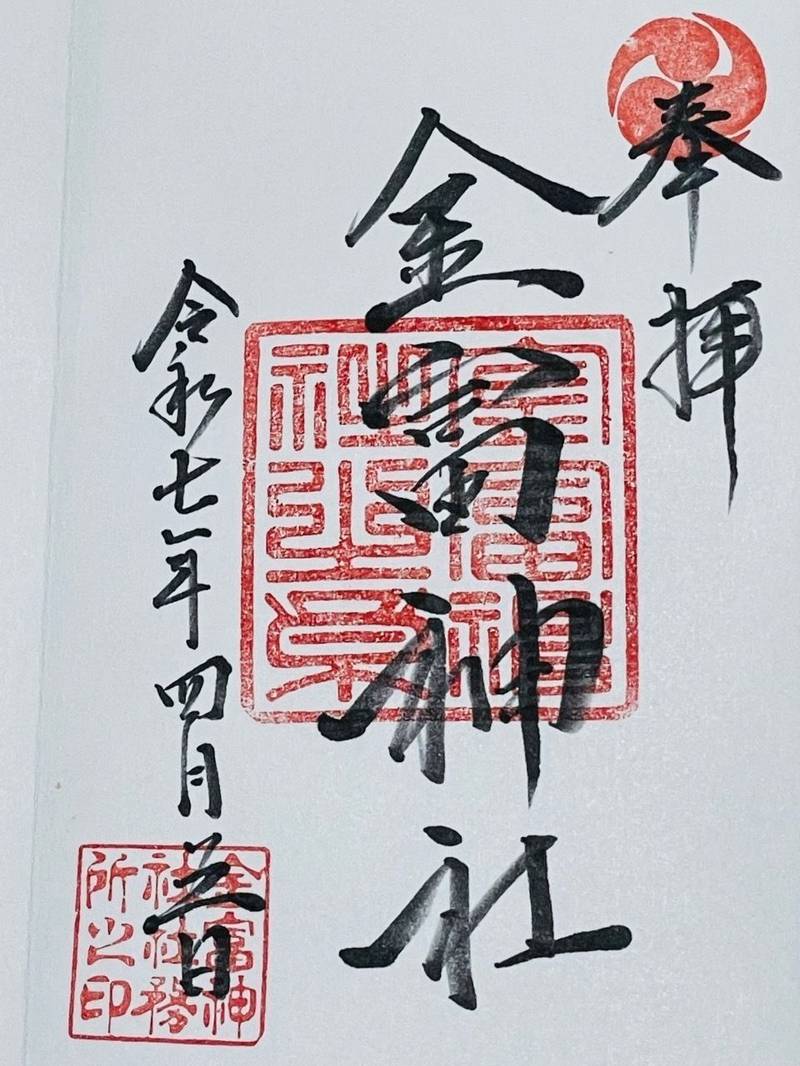 奉拝
金富神社
令和七年四月 日
金富神
社之印
金富神
社社務
所之印